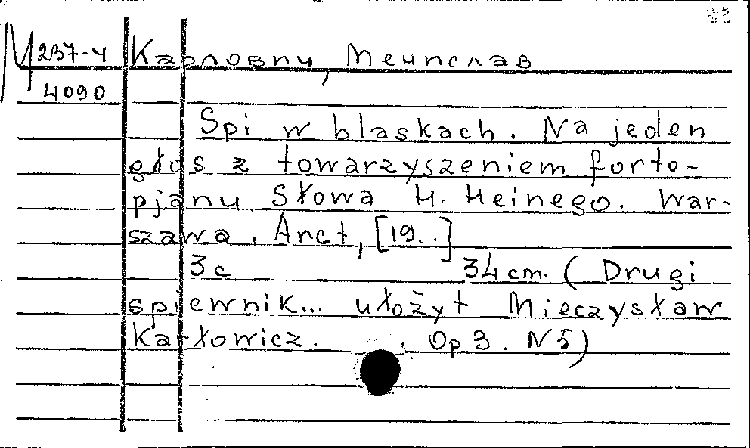 М 237-4 Карлович, Мечислав
4090
Spi w blaskach. Na jeden
głos z towarzyszeniem forte-
pjanu Słowa H. Heinego. War-
szawa, Arct, [19..]
3c 34 cm. (Drugi
spiewnik... ułożył Mieczysław
Karłowicz. . Op 3. N5)